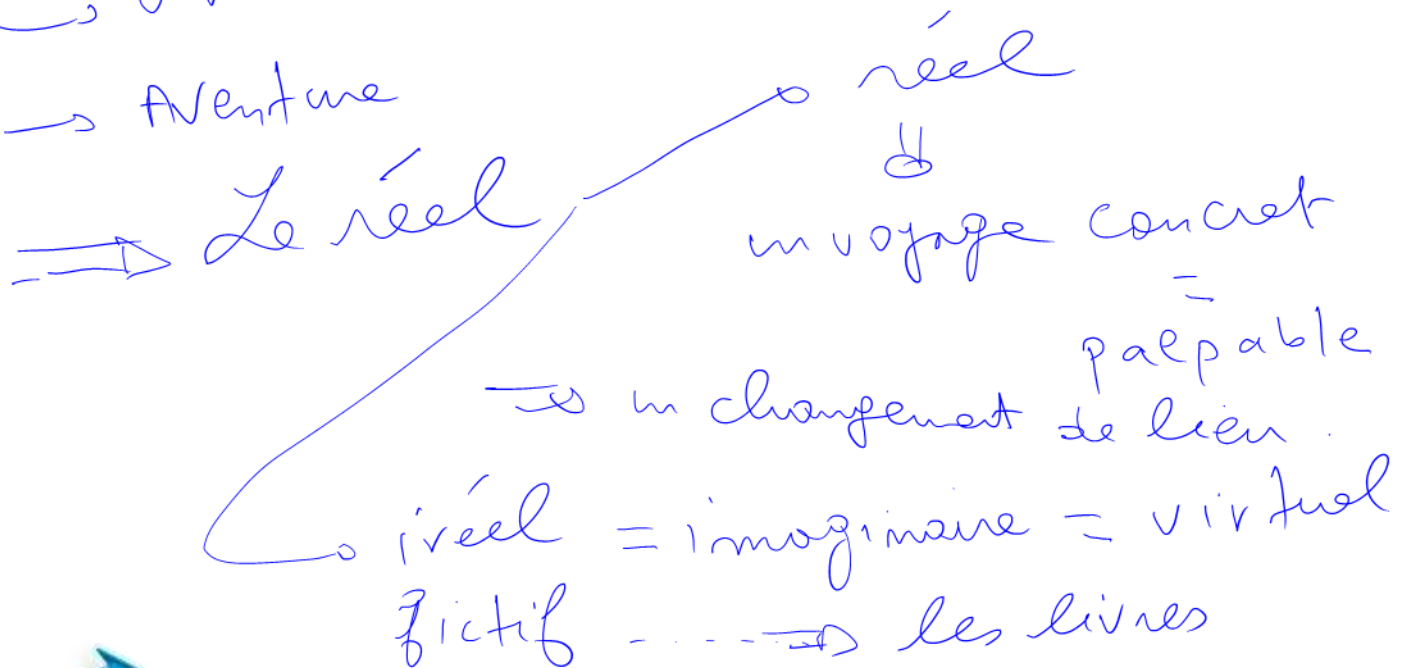 → Aventure
réel
⇒ Le réel
un voyage concret
=
palpable
⇒ un changement de lieu.
iréel = imaginaire = virtuel
fictif ....⇒ les livres